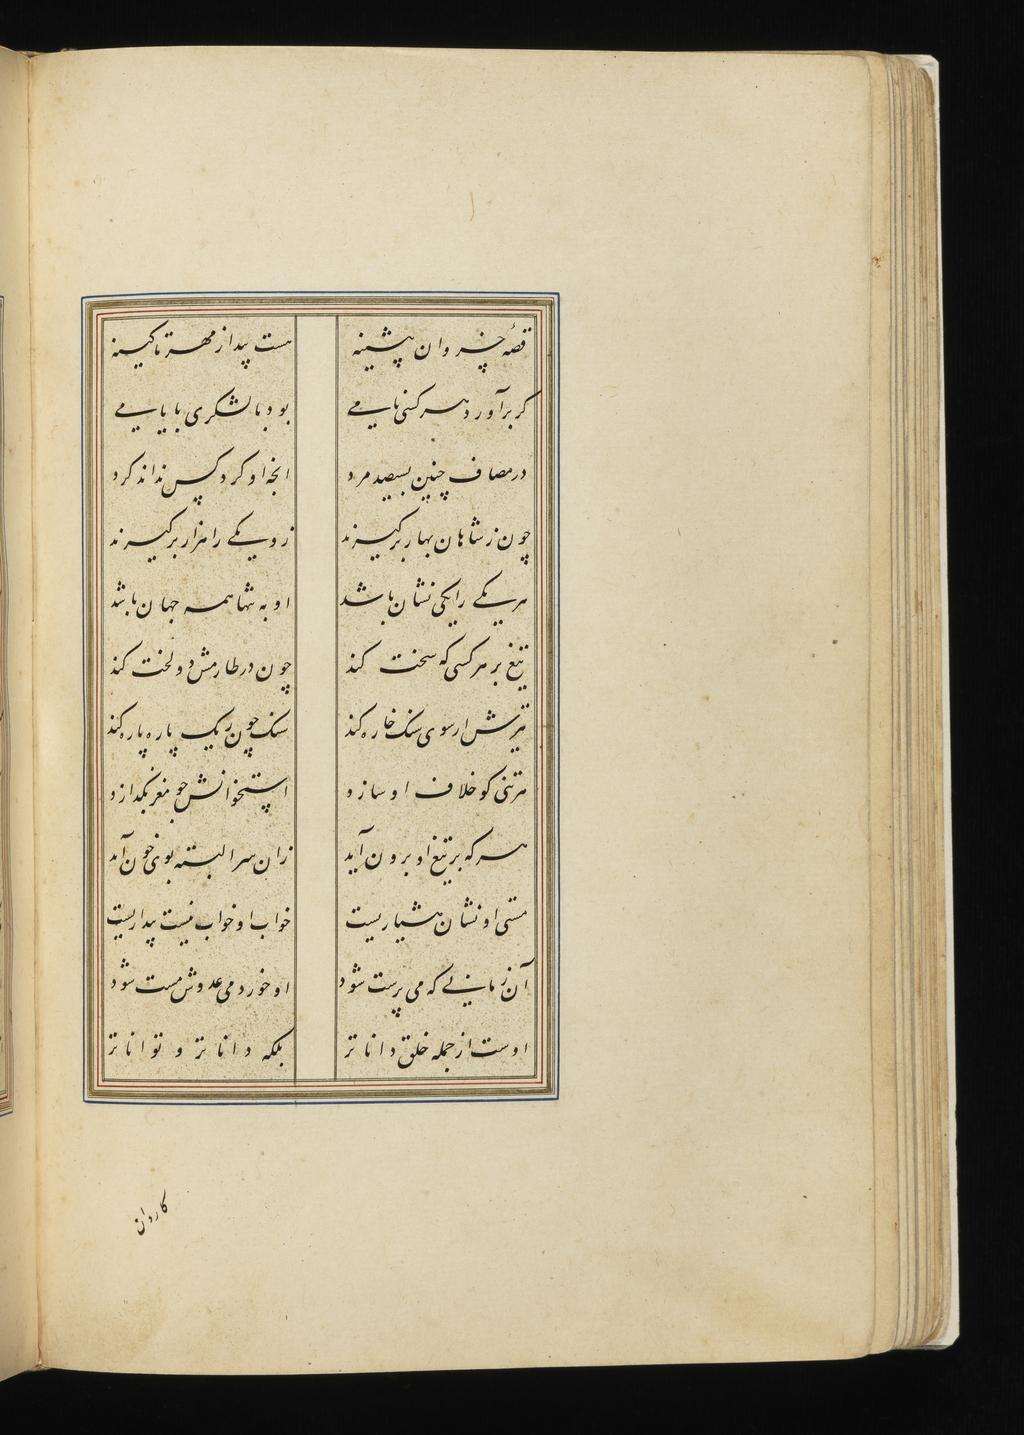 قصهٔ خسروان پیشینه هست پیدا ز مهر تا کینه
کر برآورد هر کسی نامی بود با لشکری بایامی
در مصاف چنین بسیصد مرد انچه او کرد کس نداند کرد
چون ز شاهان بهار برگیرند زو یکی را هزار برگیرند
هر یکی را یکی نشان باشد او به تنها همه جهان باشد
تیغ بر هر کسی که سخت کند چون درطارمش دو لخت کند
تیرش ار سوی سنک خاره کند سنک چون ریک پاره پاره کند
هر تنی کو خلاف او سازد استخوانش چو مغز بکدازد
هر که بر تیغ او برون آید زان سر البته بوی خون آید
مستی او نشان هشیاریست خواب او خواب نیست بیداریست
آن زمانی که می پرست شود او خورد می عدوش مست شود
اوست از جمله خلق داناتر بلکه داناتر و تواناتر
کاردان